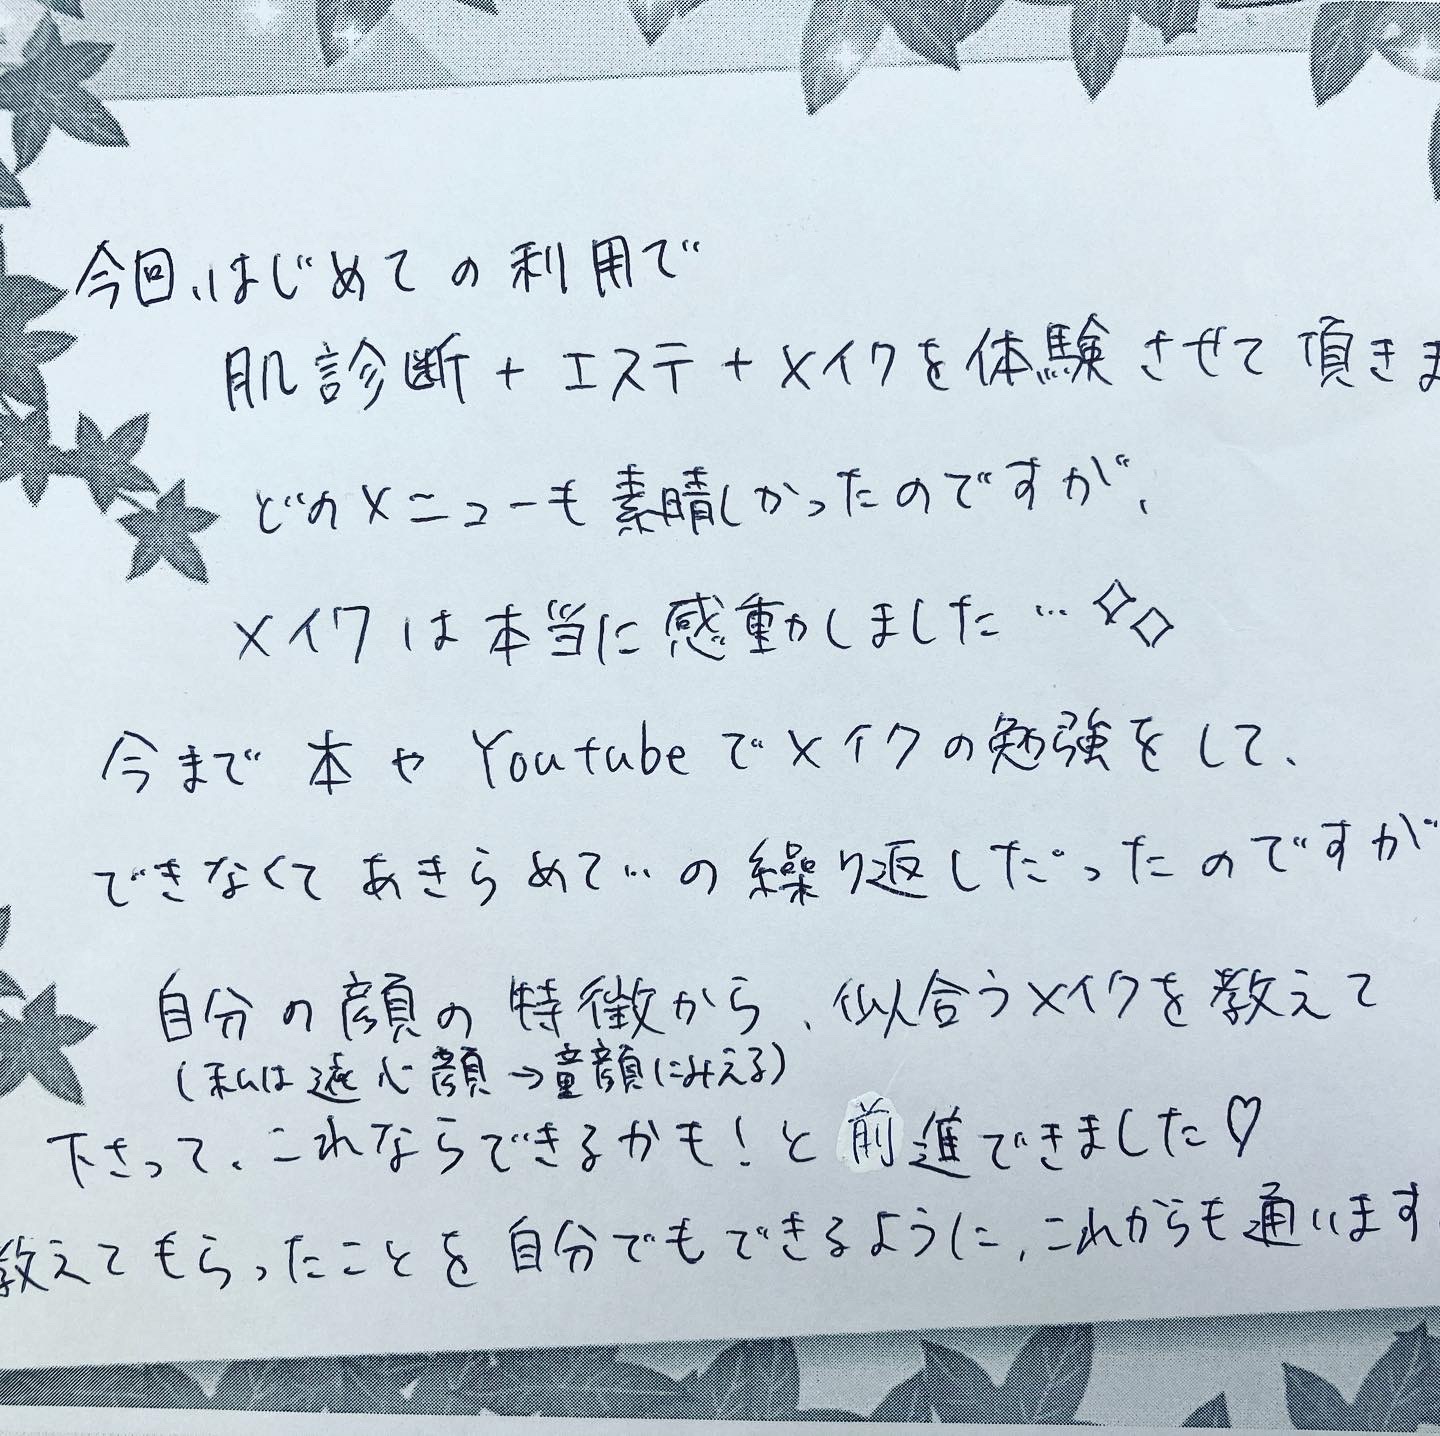 今回、はじめての利用で
肌診断+エステ+メイクを体験させて頂きま
どのメニューも素晴しかったのですが、
メイクは本当に感動しました…
今まで本やYoutubeでメイクの勉強をして、
できなくてあきらめて…の繰り返しだったのですが
自分の顔の特徴から、似合うメイクを教えて
(私は遠心顔→童顔にみえる)
下さって、これならできるかも!と前進できました♡
教えてもらったことを自分でもできるように、これからも通います